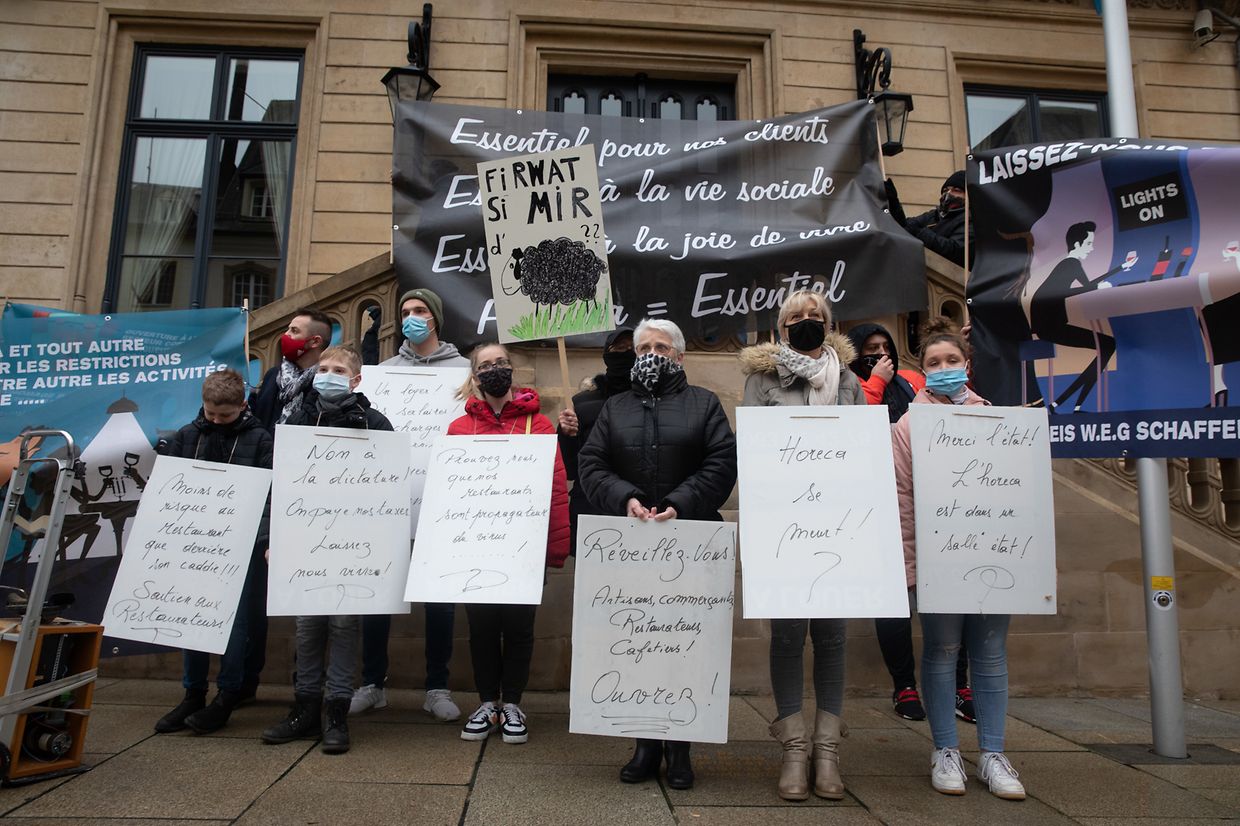 Essentiel pour nos clients
à la vie sociale
à la joie de vivre
= Essentiel
FiRWAT
Si MiR
d' ??
LAISSEZ-NOUS
LIGHTS
ON
W.E.G SCHAFFE
A ET TOUT AUTRE
R LES RESTRICTIONS
TRE AUTRE LES ACTIVITÉS
Moins de
risque au
restaurant
que derrière
son caddie!!!
Soutien aux
Restaurateurs!
Non à
la dictature!
On paye nos taxes
Laissez
nous vivre!
Un loyer!
des salaires
charges
Prouvez nous,
que nos
restaurants
sont propagateur
de virus
.........!
Réveillez-Vous!
Artisans, commerçants,
Restaurateurs,
Cafetiers!
Ouvrez!
Horeca
se
meurt!
?
Merci l'état!
L'horeca
est dans un
"sale" état!